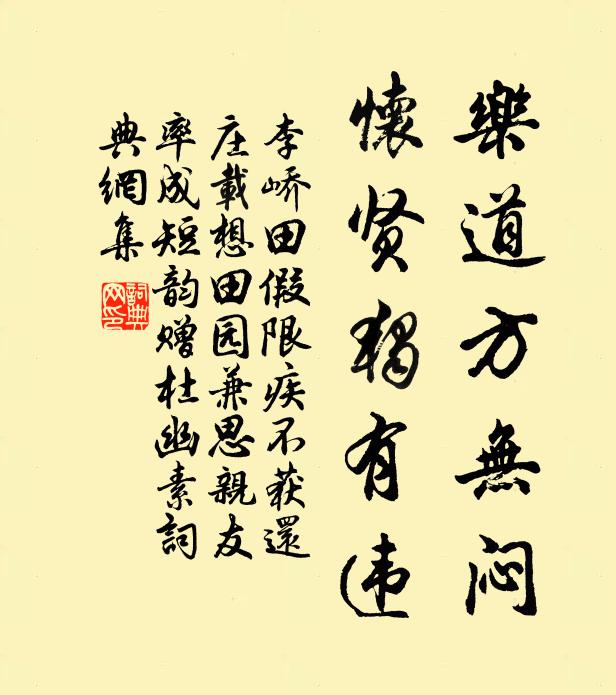 樂道方無闷
懷贤獨有违
李峤田假限疾不获還
庄載想田园兼思親友
率成短韵赠杜幽素詞
典網集
詞典
网印